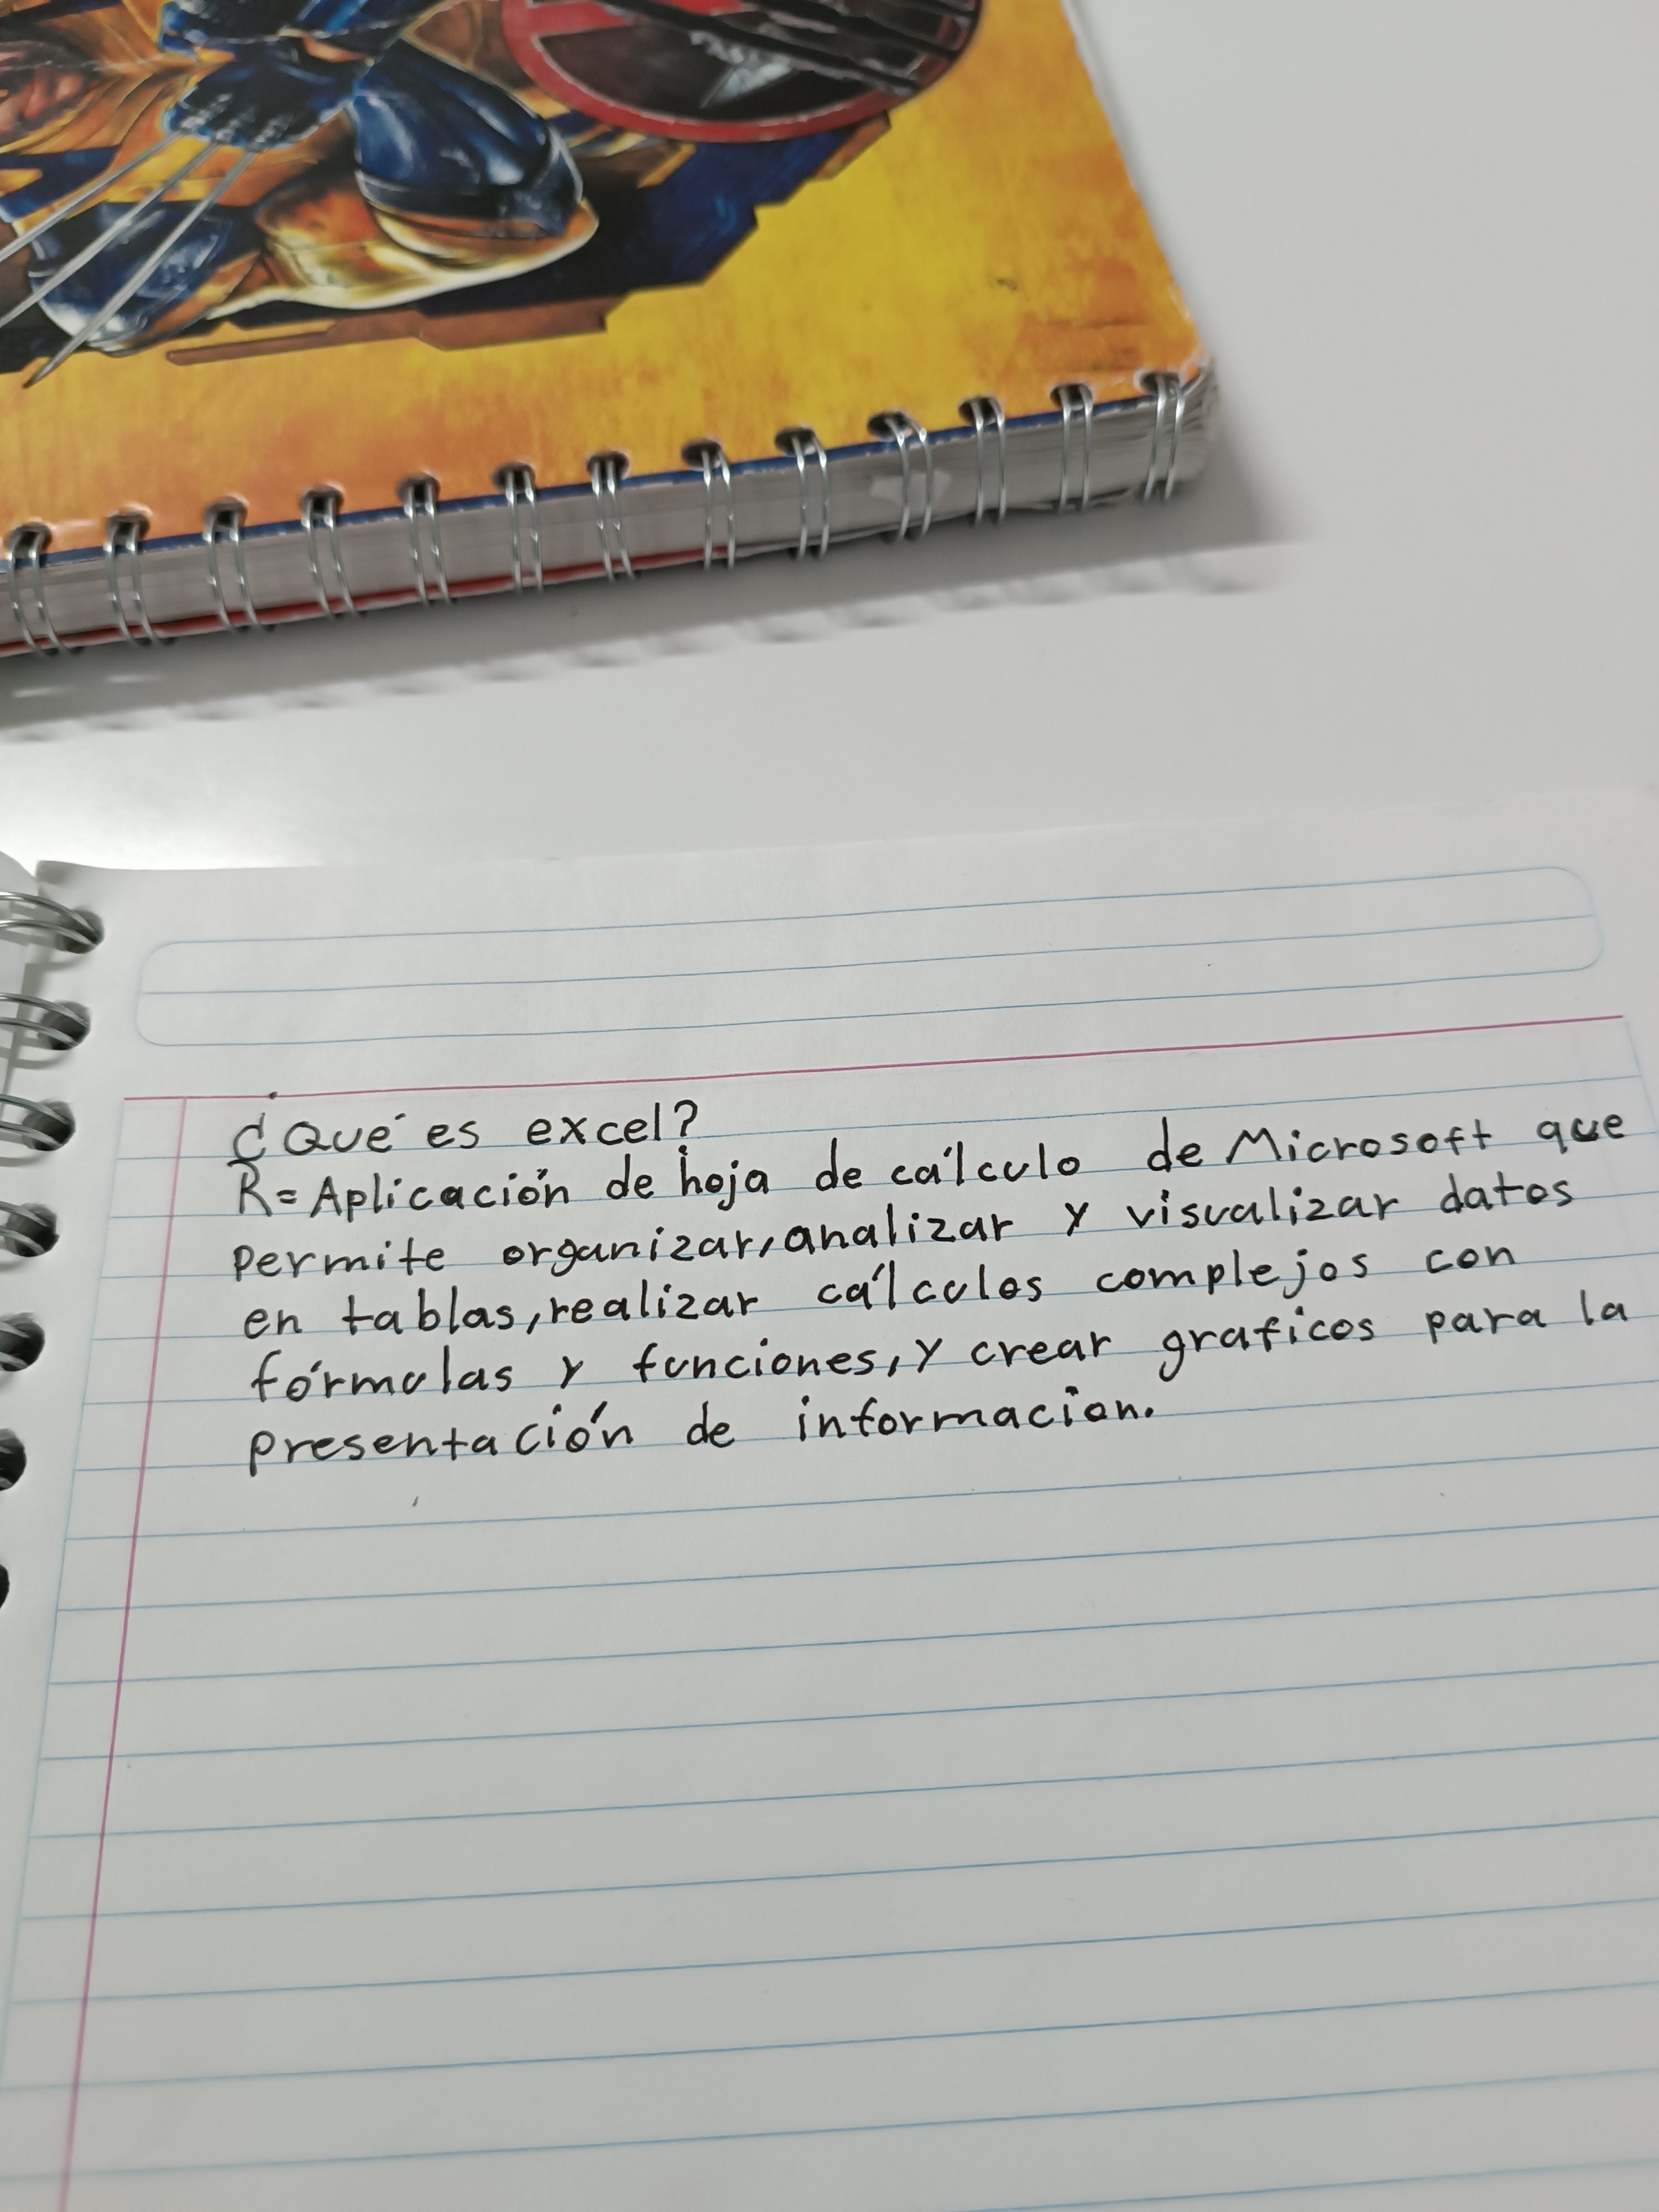 ¿Qué es excel?
R= Aplicación de hoja de cálculo de Microsoft que
permite organizar, analizar y visualizar datos
en tablas, realizar cálculos complejos con
fórmulas y funciones, y crear graficos para la
presentación de informacion.